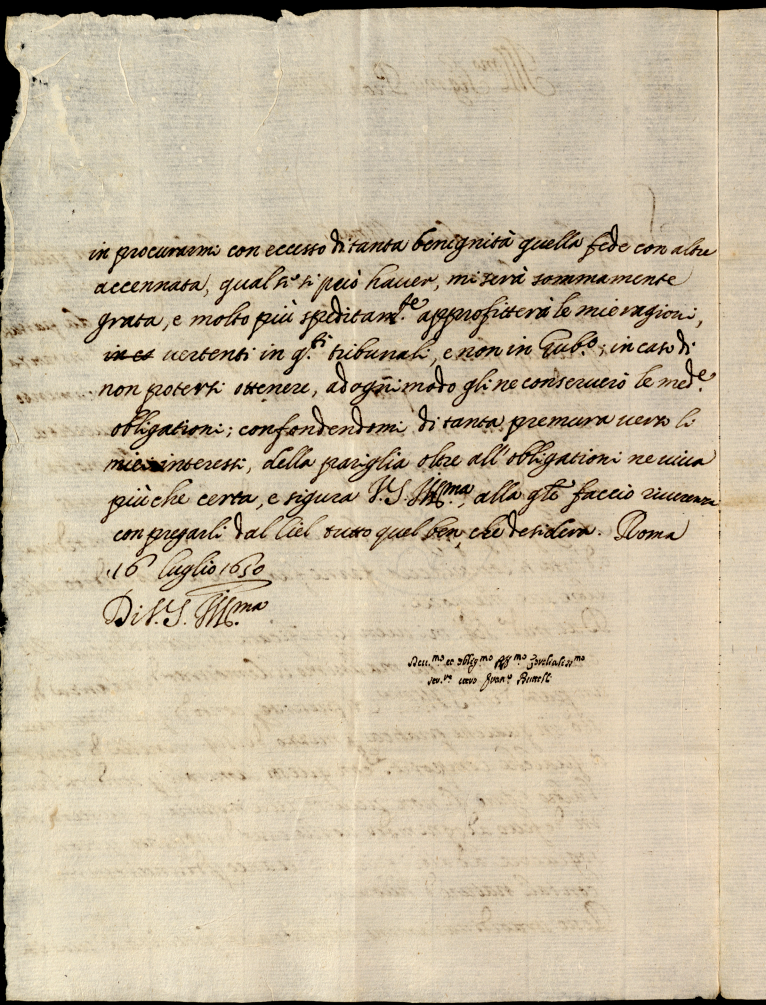 in procurarmi con eccesso di tanta benignità quella fede con altre
accennata, qual se si può haver, mi serà sommamente
grata, e molto più speditam.te approfitterà le mie ragioni,
in es vertenti in q.sti tribunali, e non in Gub.o; in caso di
non potersi ottenere, ad ogni modo gli ne conserverò le med.e
obligationi; confondendomi di tanta premura verso li
miei interessi, della pariglia oltre all'obligationi ne viva
più che certa, e sigura V.S. Ill.ma, alla qle faccio riverenza
con pregarli dal Ciel tutto quel ben, che desidera. Roma
16 luglio 1650
Di V.S. Ill.ma
Dev.mo et oblig.mo Aff.mo
ser.re vero Fran.o